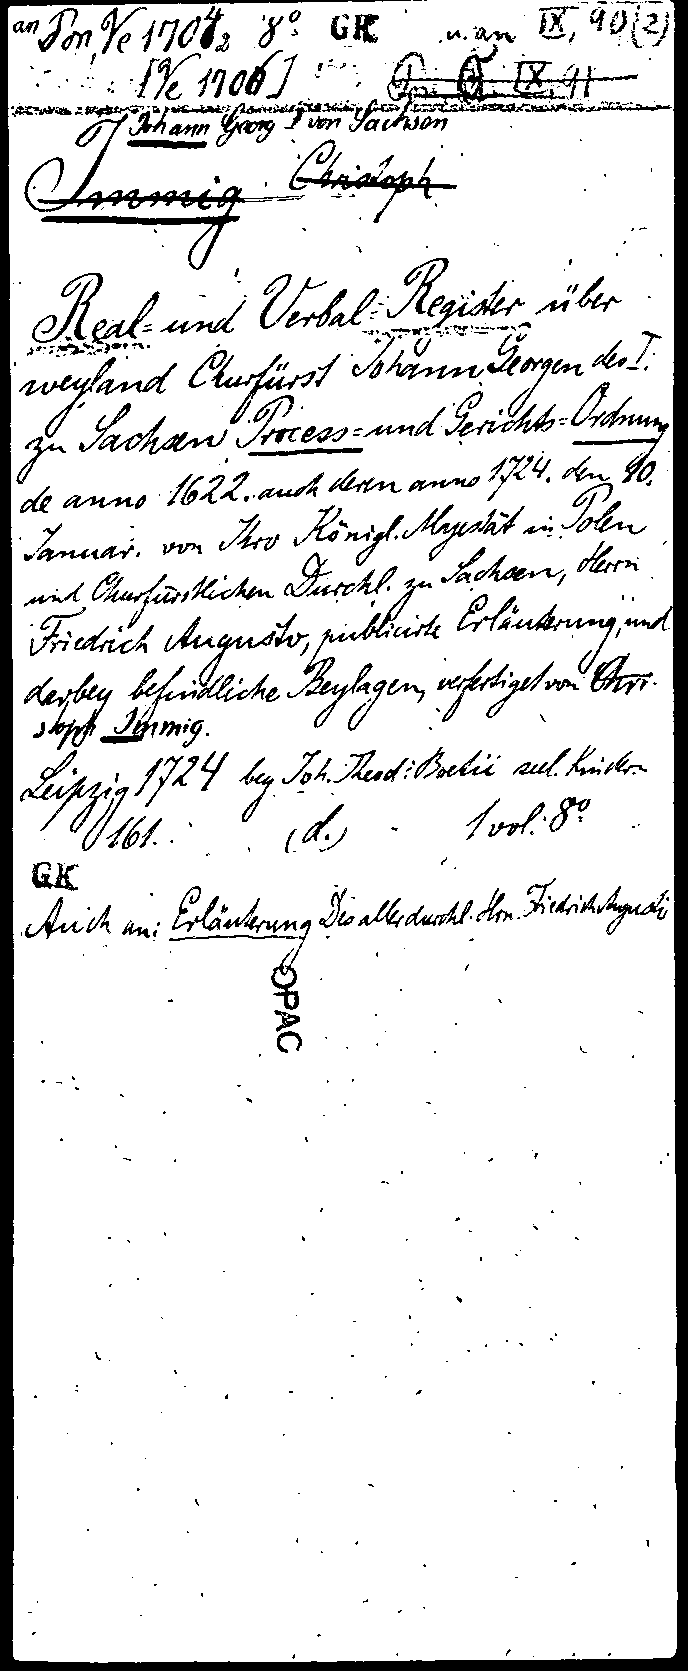 an Pon Ve 1704 2 8° GK u. an IX, 90 (2)
[Ve 1706] IX, 91
Johann Georg I von Sachsen
Immig Christoph
Real= und Verbal=Register über
weyland Churfürst Johann Georgen des I.
zu Sachsen Process= und Gerichts=Ordnung
de anno 1622. auch deren anno 1724. den 10.
Januar. von Ihro Königl. Majestät in Polen
und Churfürstlichen Durchl. zu Sachsen, Herrn
Friedrich Augusto, publicirte Erläuterung, und
darbey befindliche Beylagen, verfertiget von Chri-
stoph Immig.
Leipzig 1724 bey Joh. Theod: Boetii seel. Kinder
161. (d.) 1 vol: 8°
GK
Auch an: Erläuterung Des allerdurchl. Hrn. Friedrich Augusti
OPAC